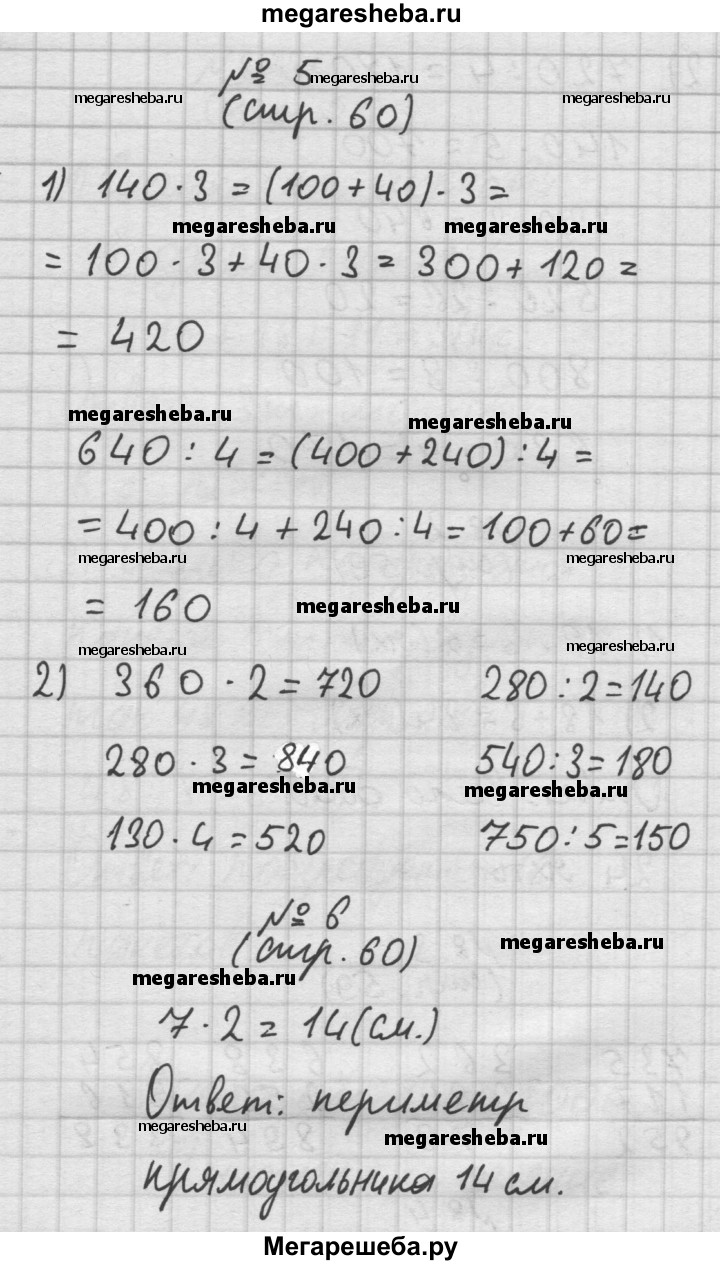 megaresheba.ru
№ 5
megaresheba.ru
megaresheba.ru
megaresheba.ru
(стр. 60)
1) 140 · 3 = (100 + 40) · 3 =
megaresheba.ru
megaresheba.ru
= 100 · 3 + 40 · 3 = 300 + 120 =
= 420
megaresheba.ru
megaresheba.ru
640 : 4 = (400 + 240) : 4 =
= 400 : 4 + 240 : 4 = 100 + 60 =
megaresheba.ru
megaresheba.ru
= 160
megaresheba.ru
megaresheba.ru
megaresheba.ru
2) 360 · 2 = 720 280 : 2 = 140
280 · 3 = 840 540 : 3 = 180
megaresheba.ru
megaresheba.ru
130 · 4 = 520 750 : 5 = 150
№ 6
(стр. 60)
megaresheba.ru
megaresheba.ru
7 · 2 = 14 (см.)
Ответ: периметр
megaresheba.ru
megaresheba.ru
прямоугольника 14 см.
Мегарешеба.ру